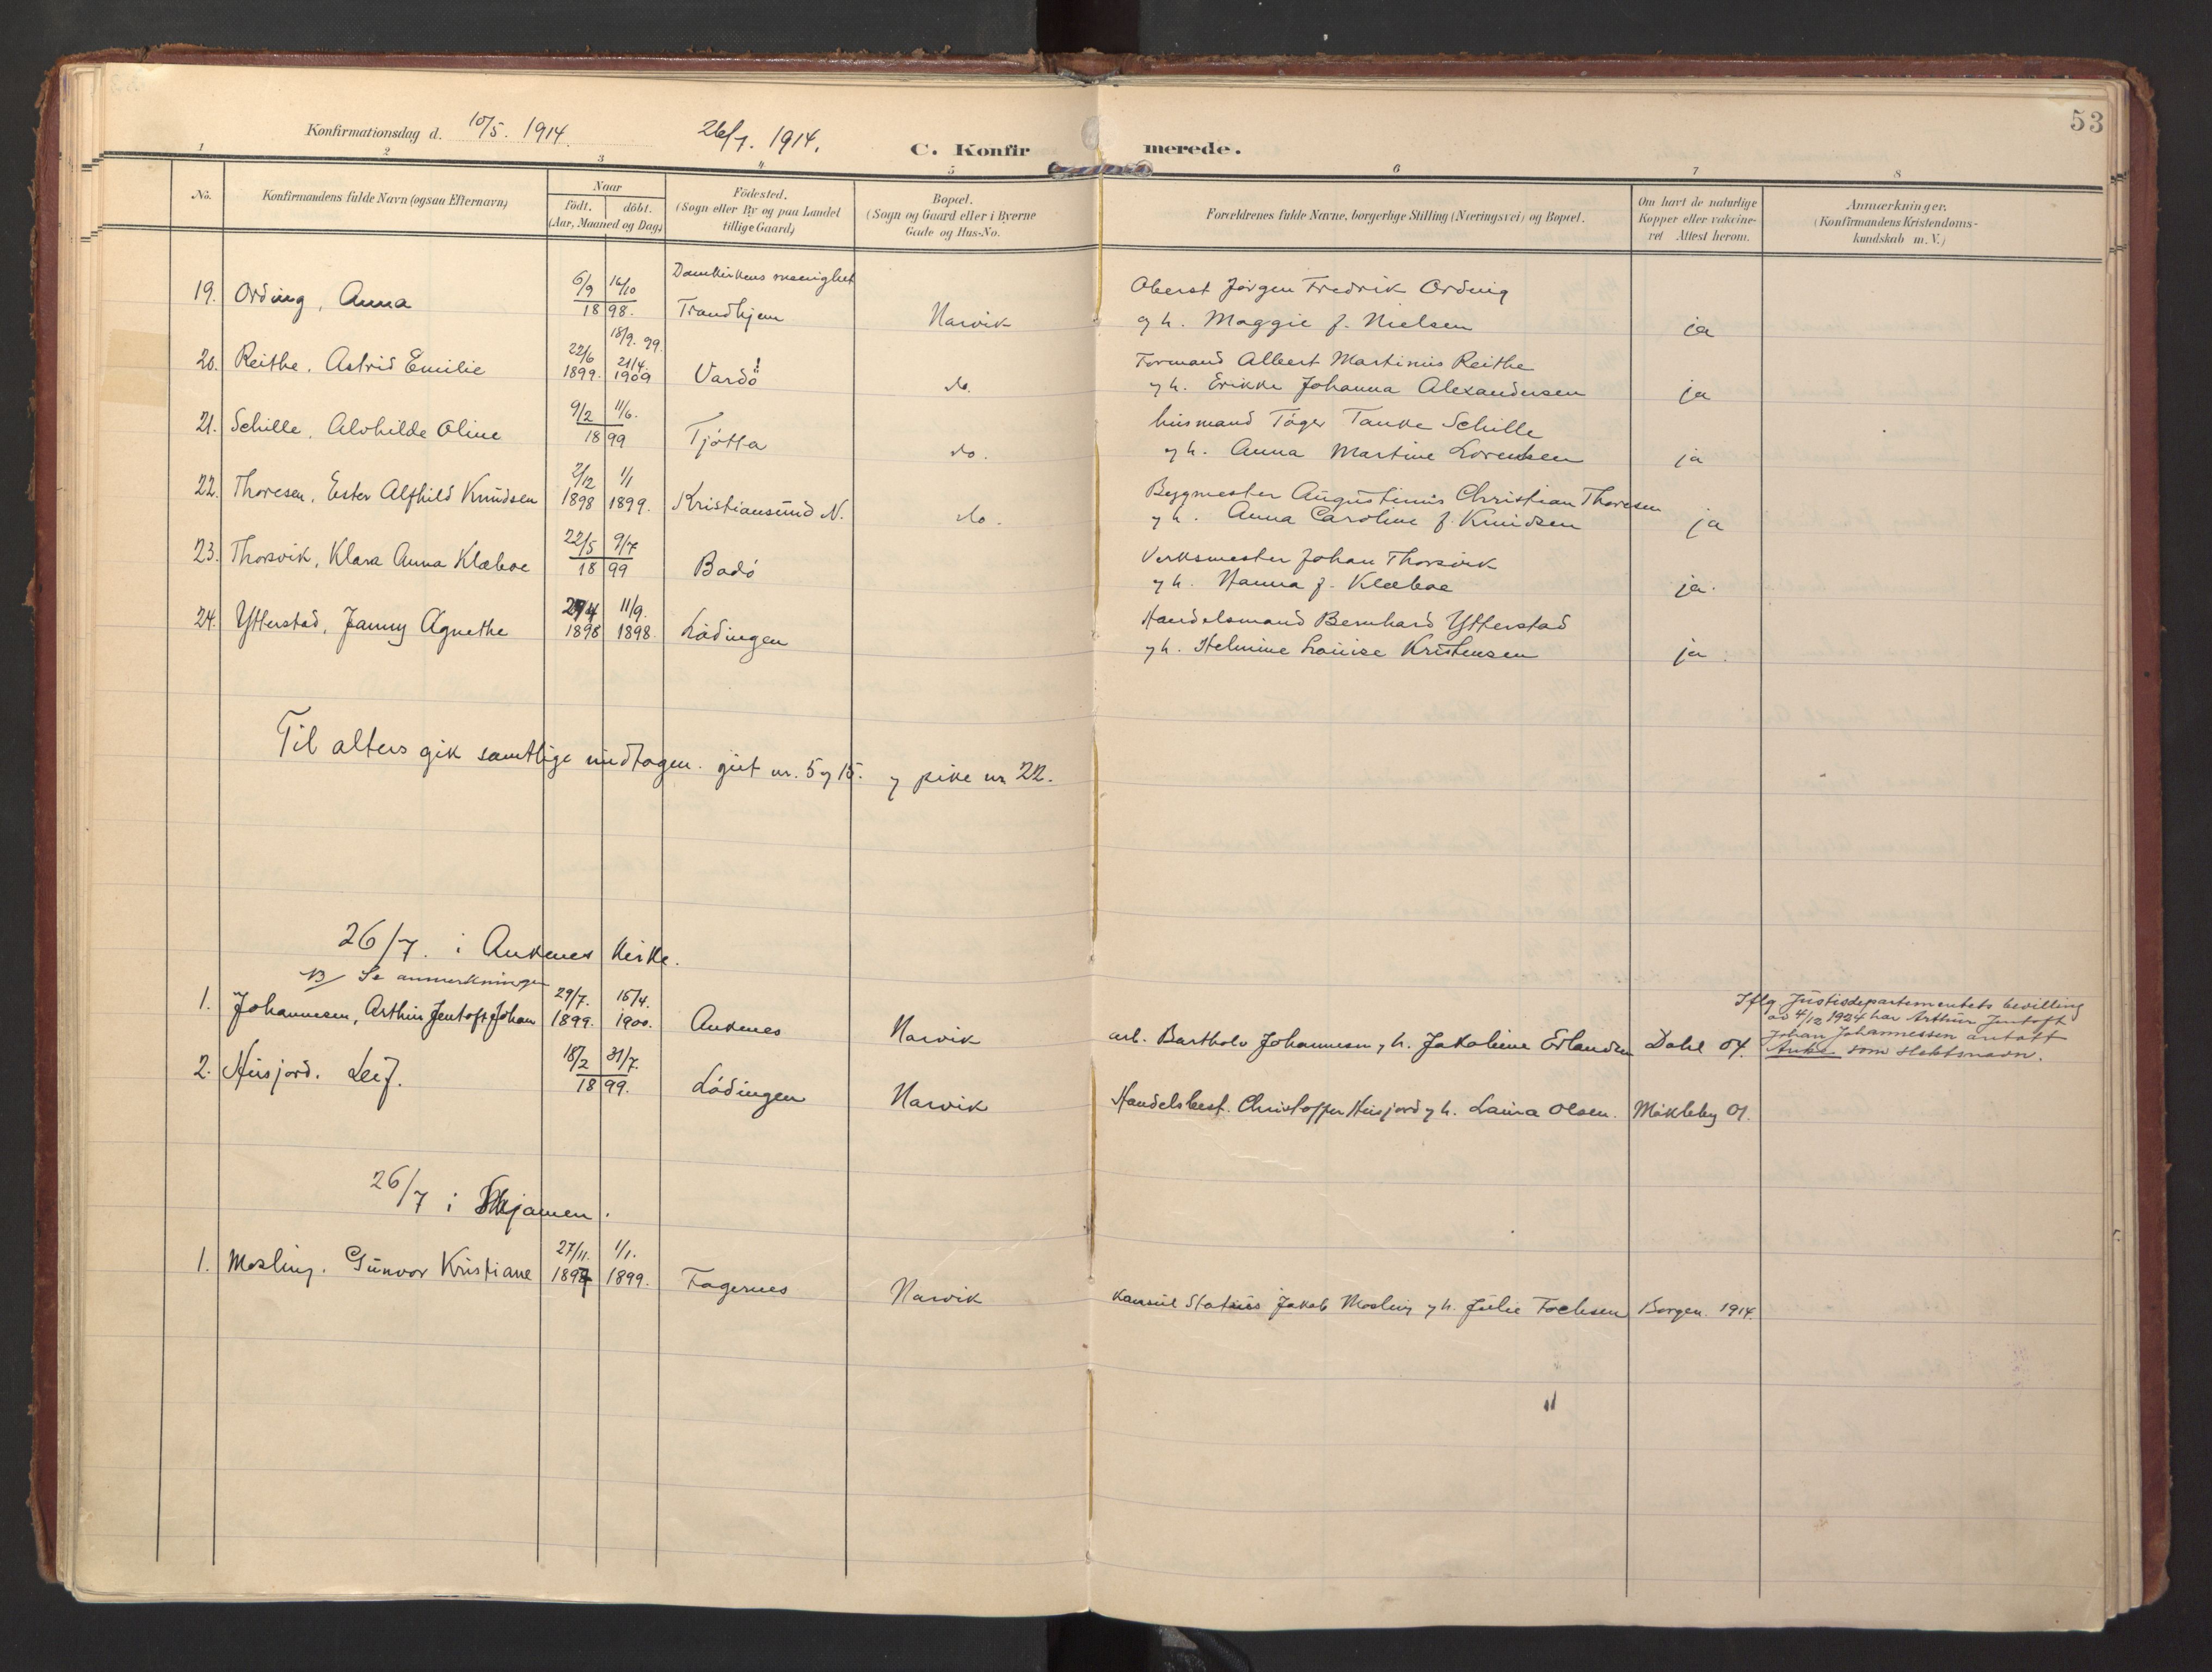 53
Konfirmationsdag d. 10/5. 1914. 26/7. 1914.
C. Konfirmerede.
1 2 3 4 5 6 7 8
No.
Konfirmandens fulde Navn (ogsaa Efternavn)
Naar
født. døbt.
(Aar, Maaned og Dag)
Fødested.
(Sogn eller By og paa Landet
tillige Gaard)
Bopæl.
(Sogn og Gaard eller i Byerne
Gade og Hus-No.
Forældrenes fulde Navne, borgerlige Stilling (Næringsvei) og Bopæl.
Om havt de naturlige
Kopper eller vakcine-
ret Attest herom.
Anmærkninger.
(Konfirmandens Kristendoms-
kundskab m. V.)
19. Ording, Anna 6/9 16/10 1898. Domkirkens menighet Trondhjem Narvik Oberst Jörgen Fredrik Ording
og h. Maggie f. Nielsen ja
20. Reithe, Astrid Emilie 22/6 1899. 18/9. 99. 21/4. 1909 Vardö! do. Formand Albert Martinius Reithe
og h. Erikke Johanna Alexandersen ja
21. Schille, Alvhilde Oline 9/2 11/6. 1899 Tjötta do. husmand Töger Tanke Schille
og h. Anna Martine Lorentsen ja
22. Thoresen, Ester Alfhild Knudsen 2/12 1898 1/1 1899. Kristiansund N. do. Byggmester Augustinus Christian Thoresen
og h. Anna Caroline f. Knudsen ja
23. Thorsvik, Klara Anna Klæboe 22/5 9/7 1899 Bodö Verksmester Johan Thorsvik
og h. Hanna f. Klæboe ja.
24. Ytterstad, Jenny Agnethe 1898 11/9. 1898. Lödingen Handelsmand Bernhard Ytterstad
og h. Helmine Louise Kristensen ja.
Til alters gik samtlige undtagen gut nr. 5 og 15. og pike nr 22.
26/7. i Ankenes Kirke.
NB Se anmerkningen
1. Johannesen, Arthur Jentoft Johan 29/7. 1899. 15/4. 1900. Ankenes Narvik arb. Bartholo Johannesen og h. Jakobine Erlandsen Dahl 04. Iflg. Justisdepartementets bevilling
av 4/12 1924 har Arthur Jentoft
Johan Johannessen antatt
Anke som slektsnavn.
2. Husjord. Leif. 18/2 31/7. 1899. Lödingen Narvik Handelsbest. Christoffer Husjord og h. Laura Olsen. Mökleby 01.
26/7 i Skjomen.
1. Mosling. Gunvor Kristiane 27/11. 1897 1/1. 1899. Fagernes Narvik Konsul Statius Jakob Mosling og h. Julie Fochsen Borgen. 1914.